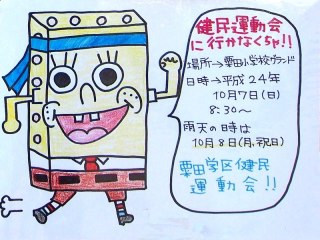 健民運動会
に行かなくちゃ!!
場所→粟田小学校グランド
日時→平成24年
10月7日(日)
8:30〜
雨天の時は
10月8日(月,祝日)
粟田学区健民
運動会!!